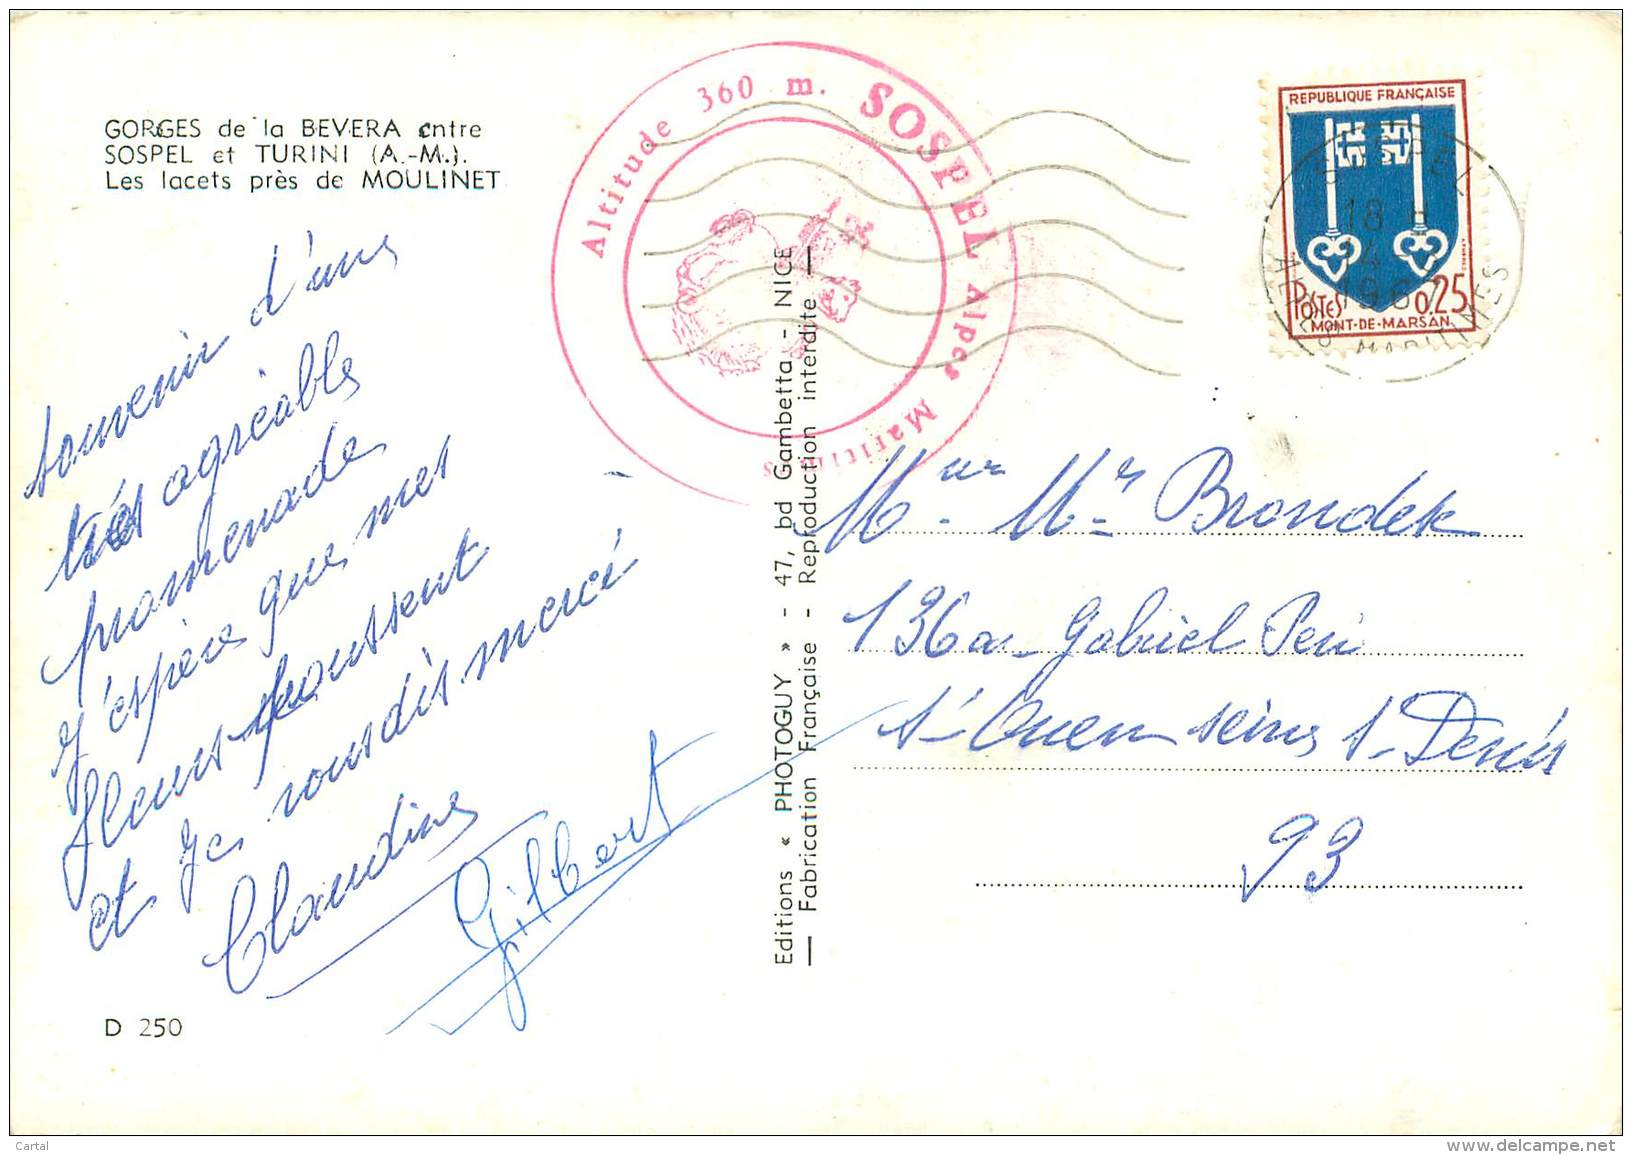 GORGES de la BEVERA entre
SOSPEL et TURINI (A.-M.).
Les lacets près de MOULINET
souvenir d'une
très agréable
promenade
J'espère que mes
fleurs poussent
et je vous dis merci
Claudine
Gilbert
D 250
Altitude 360 m. SOSPEL Alpes Maritimes
Editions « PHOTOGUY » - 47, bd Gambetta - NICE
— Fabrication Française - Reproduction interdite —
REPUBLIQUE FRANÇAISE
POSTES 0,25
MONT-DE-MARSAN
SOSPEL
18 H
4
1967
ALPES MARITIMES
Meur Mr Brondek
136 a Gabriel Peri
St Ouen seine St Denis
93
Cartal
www.delcampe.net